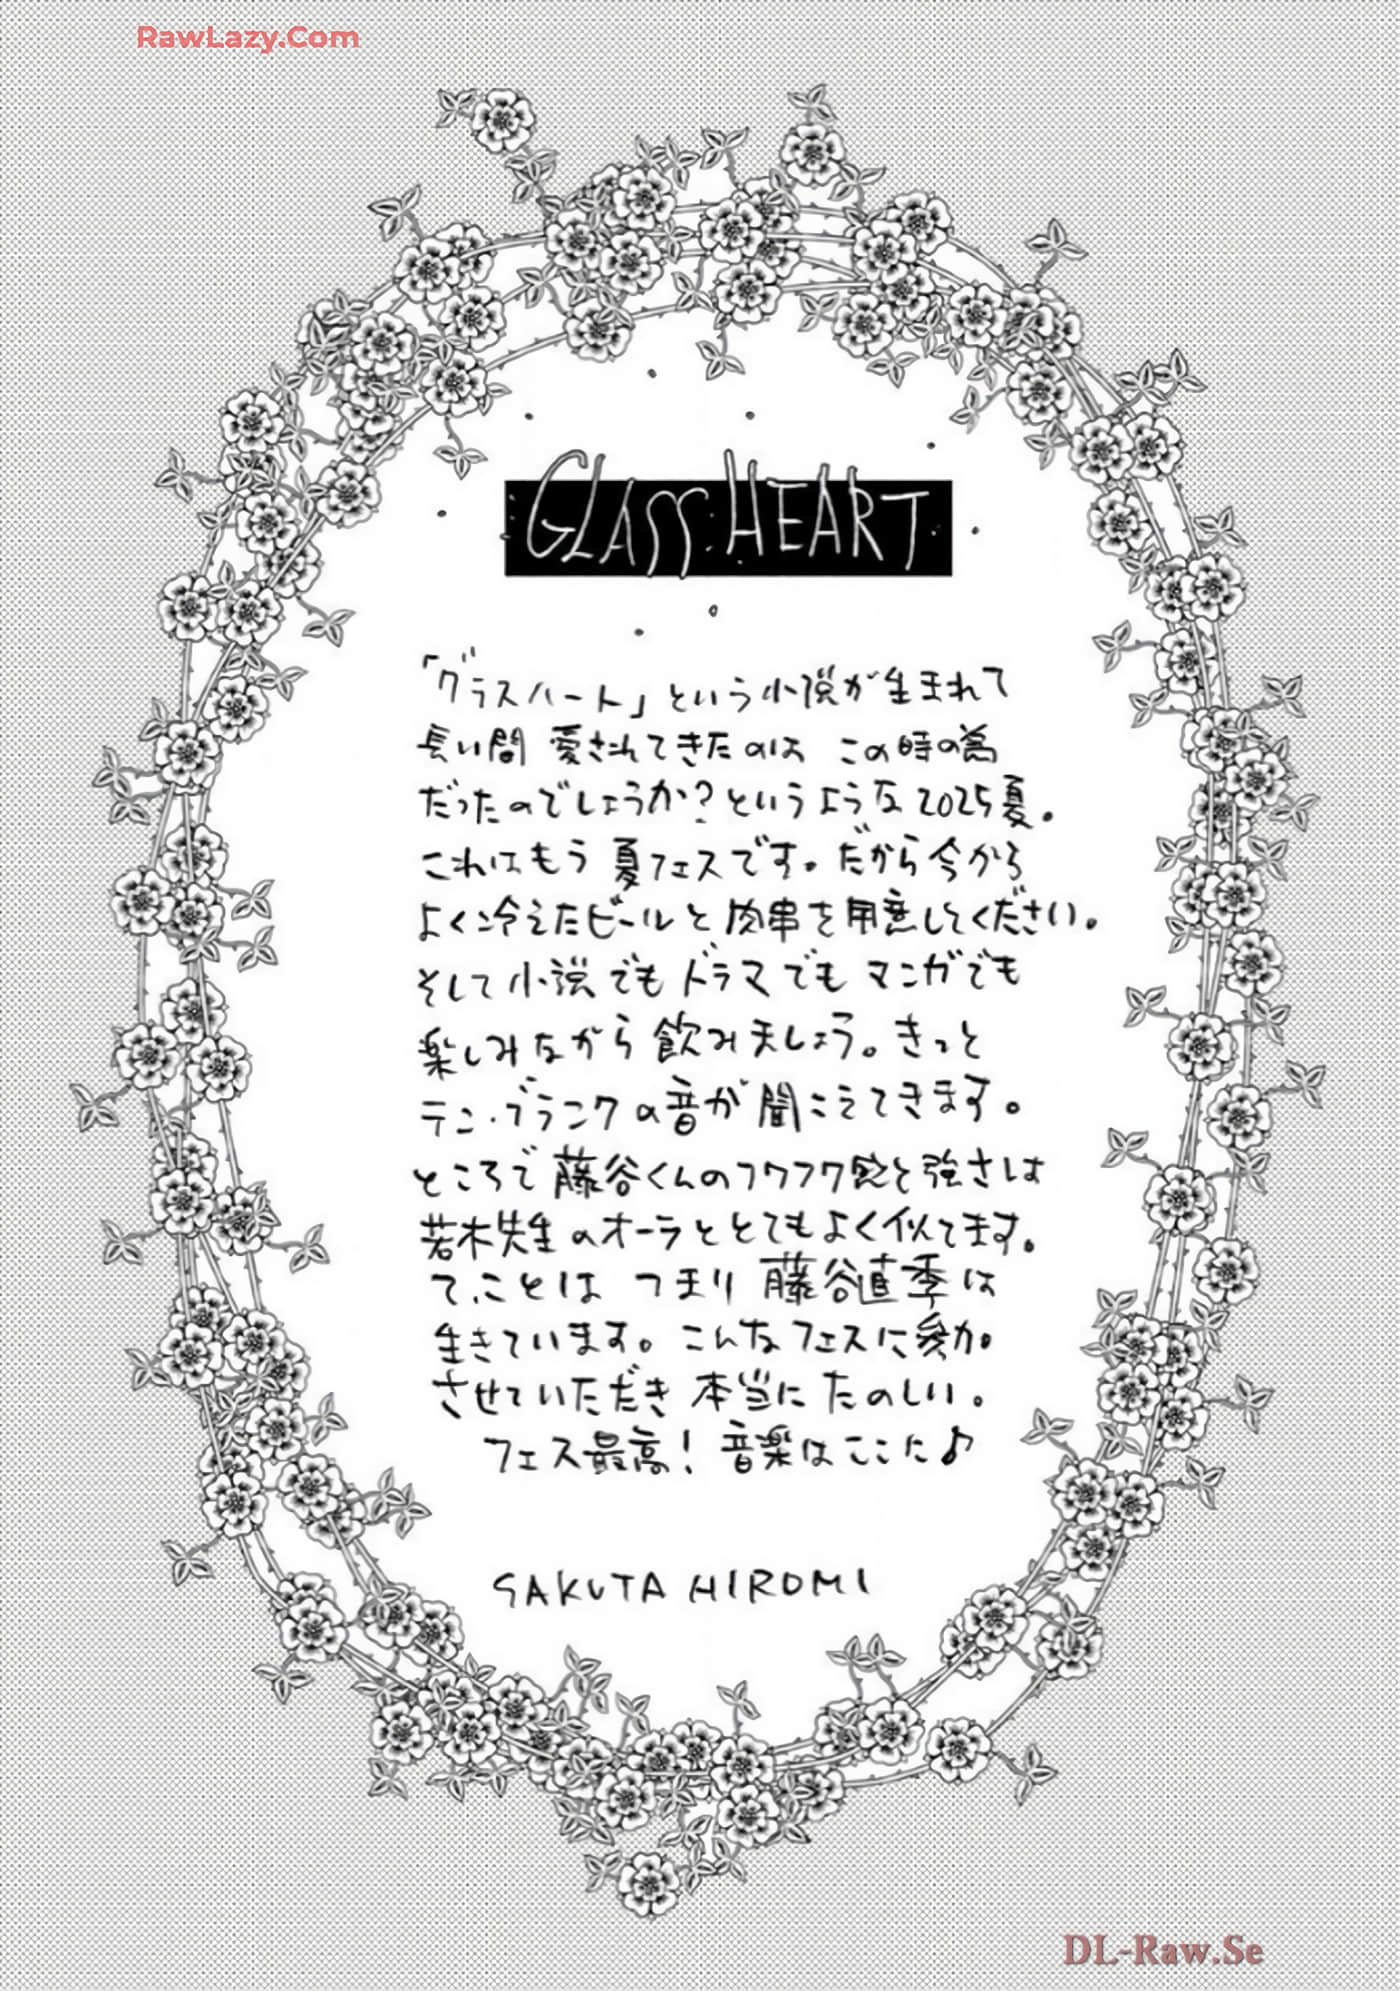 RawLazy.Com
GLASS HEART
「グラスハート」という小説が生まれて
長い間 愛されてきたのは この時の為
だったのでしょうか?というような2025夏。
これはもう 夏フェスです。だから今から
よく冷えたビールと肉串を用意してください。
そして小説でもドラマでもマンガでも
楽しみながら飲みましょう。きっと
テン・ブランクの音が聞こえてきます。
ところで藤谷くんのフワフワ感と強さは
若木先生のオーラととてもよく似てます。
てことは つまり 藤谷直季は
生きています。こんなフェスに参加
させていただき 本当に たのしい。
フェス最高! 音楽はここに♪
SAKUTA HIROMI
DL-Raw.Se